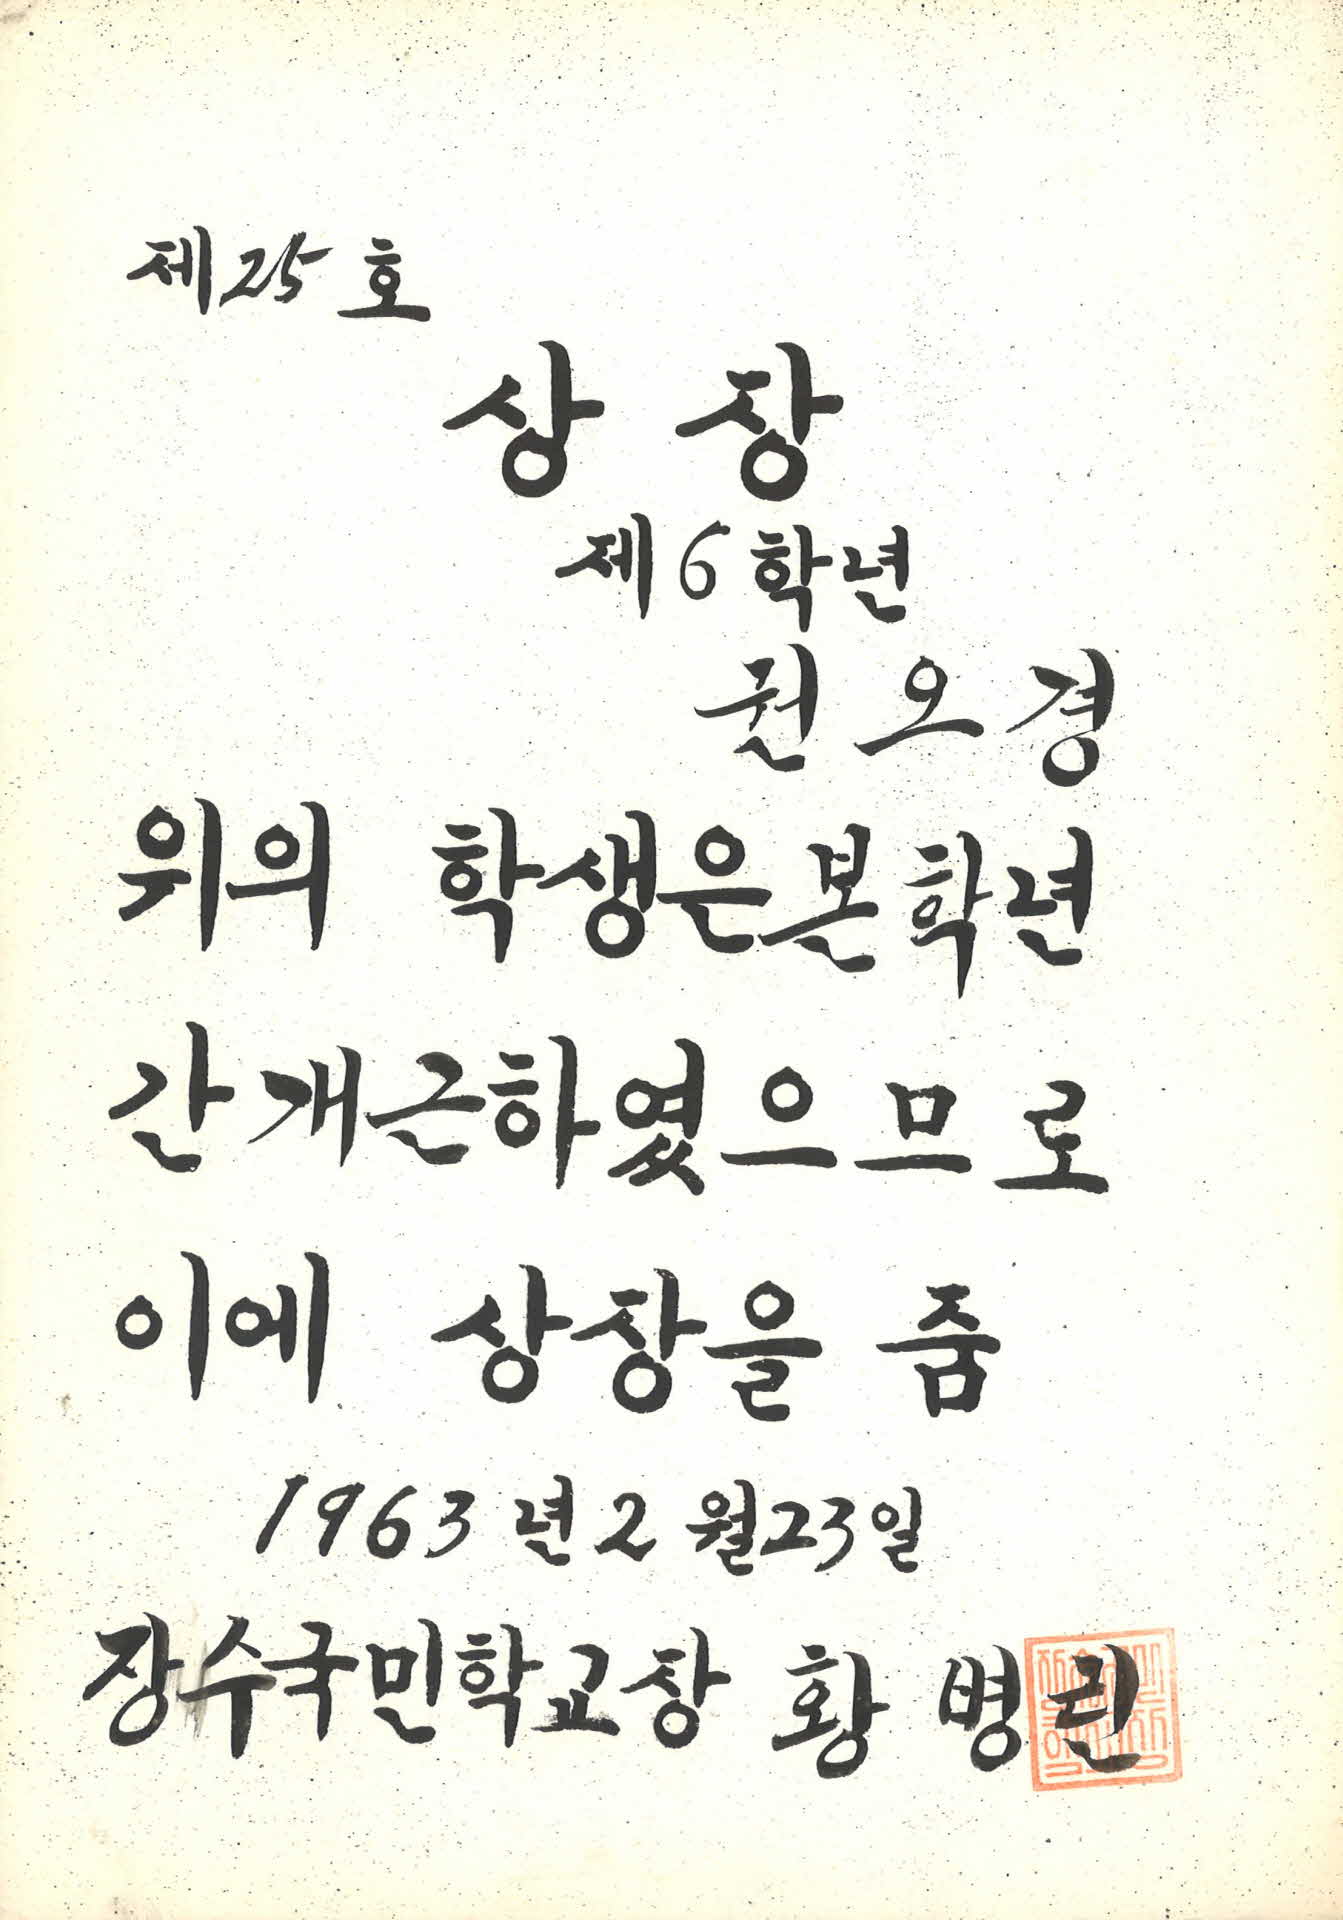 제25호
상장
제6학년
권오경
위의 학생은본학년
간개근하였으므로
이에 상장을 줌
1963년2월23일
장수국민학교장 황병린